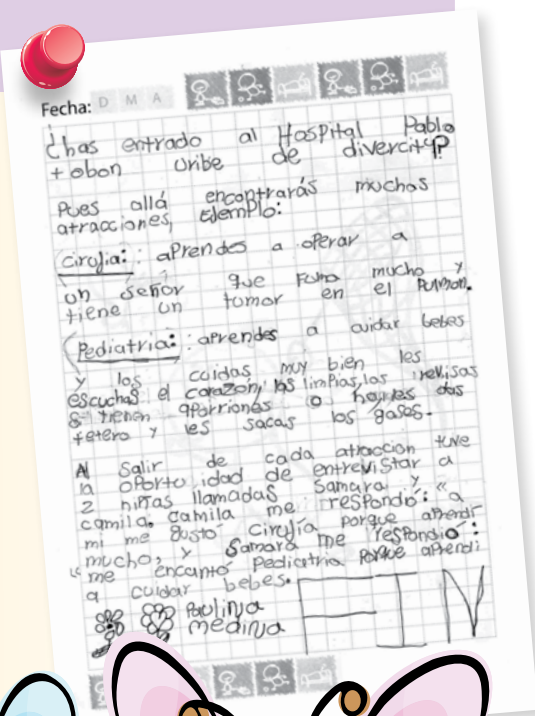 Fecha: D M A
¿has entrado al Hospital Pablo
tobon Uribe de divercity?
Pues allá encontrarás muchas
atracciones, Ejemplo:
Cirujia: : aPrendes a operar a
un señor que Fuma mucho y
tiene un tumor en el Pulmon.
Pediatria: : aprendes a cuidar bebes
y los cuidas muy bien les
escuchas el corazón, los limpias, las revisas
si tienen aporriones o les das
tetero y les sacas los gases.
Al salir de cada atraccion tuve
la oportunidad de entrevistar a
2 niñas llamadas Samara y
camila. camila me respondió: "a
mi me gustó Cirujía porque aprendí
mucho, y Samara me respondió:
"me encantó Pediatria Porque aprendi
a cuidar bebes.
Paulinja
medinja
FIN